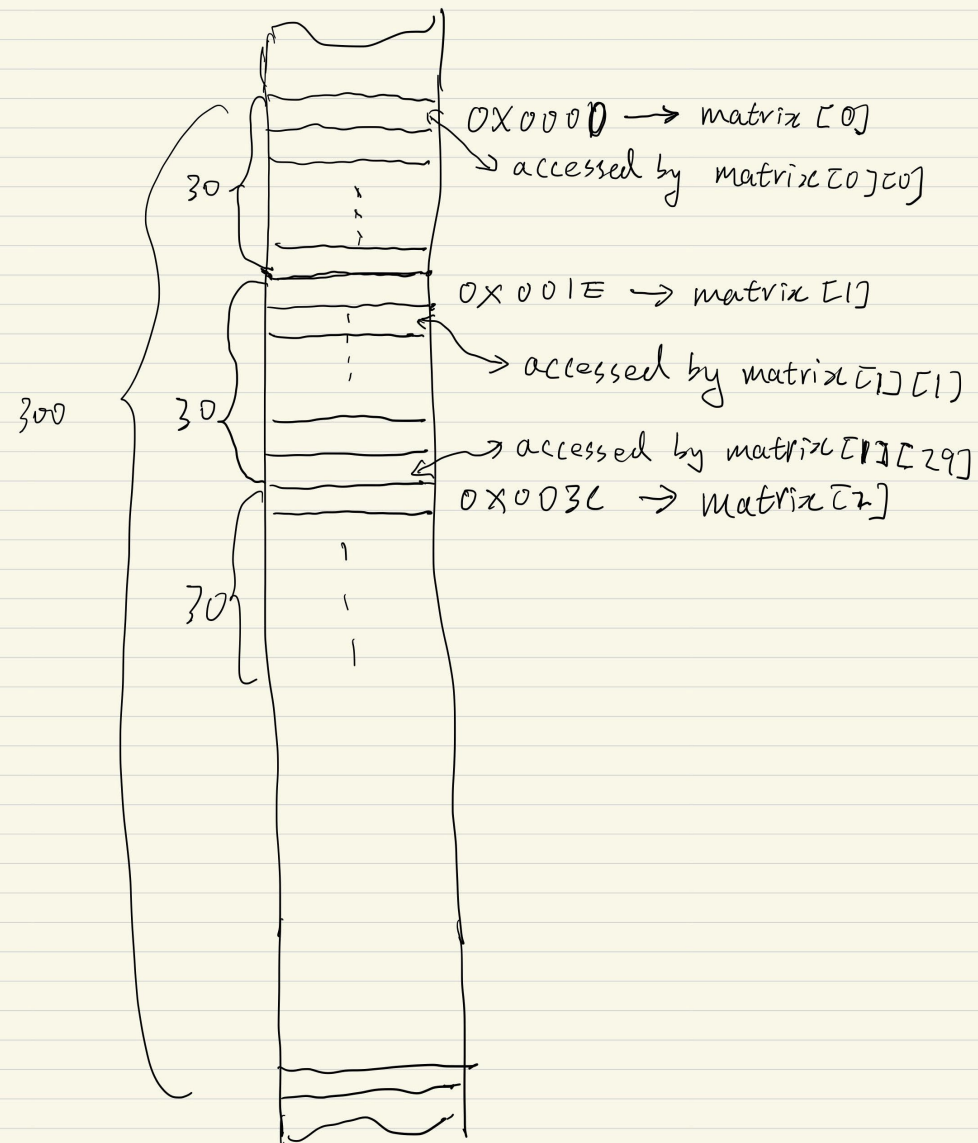 0X0000 → matrix [0]
accessed by matrix[0][0]
30
0X001E → matrix [1]
accessed by matrix[1][1]
300
30
accessed by matrix[1][29]
0X003C → matrix[2]
30